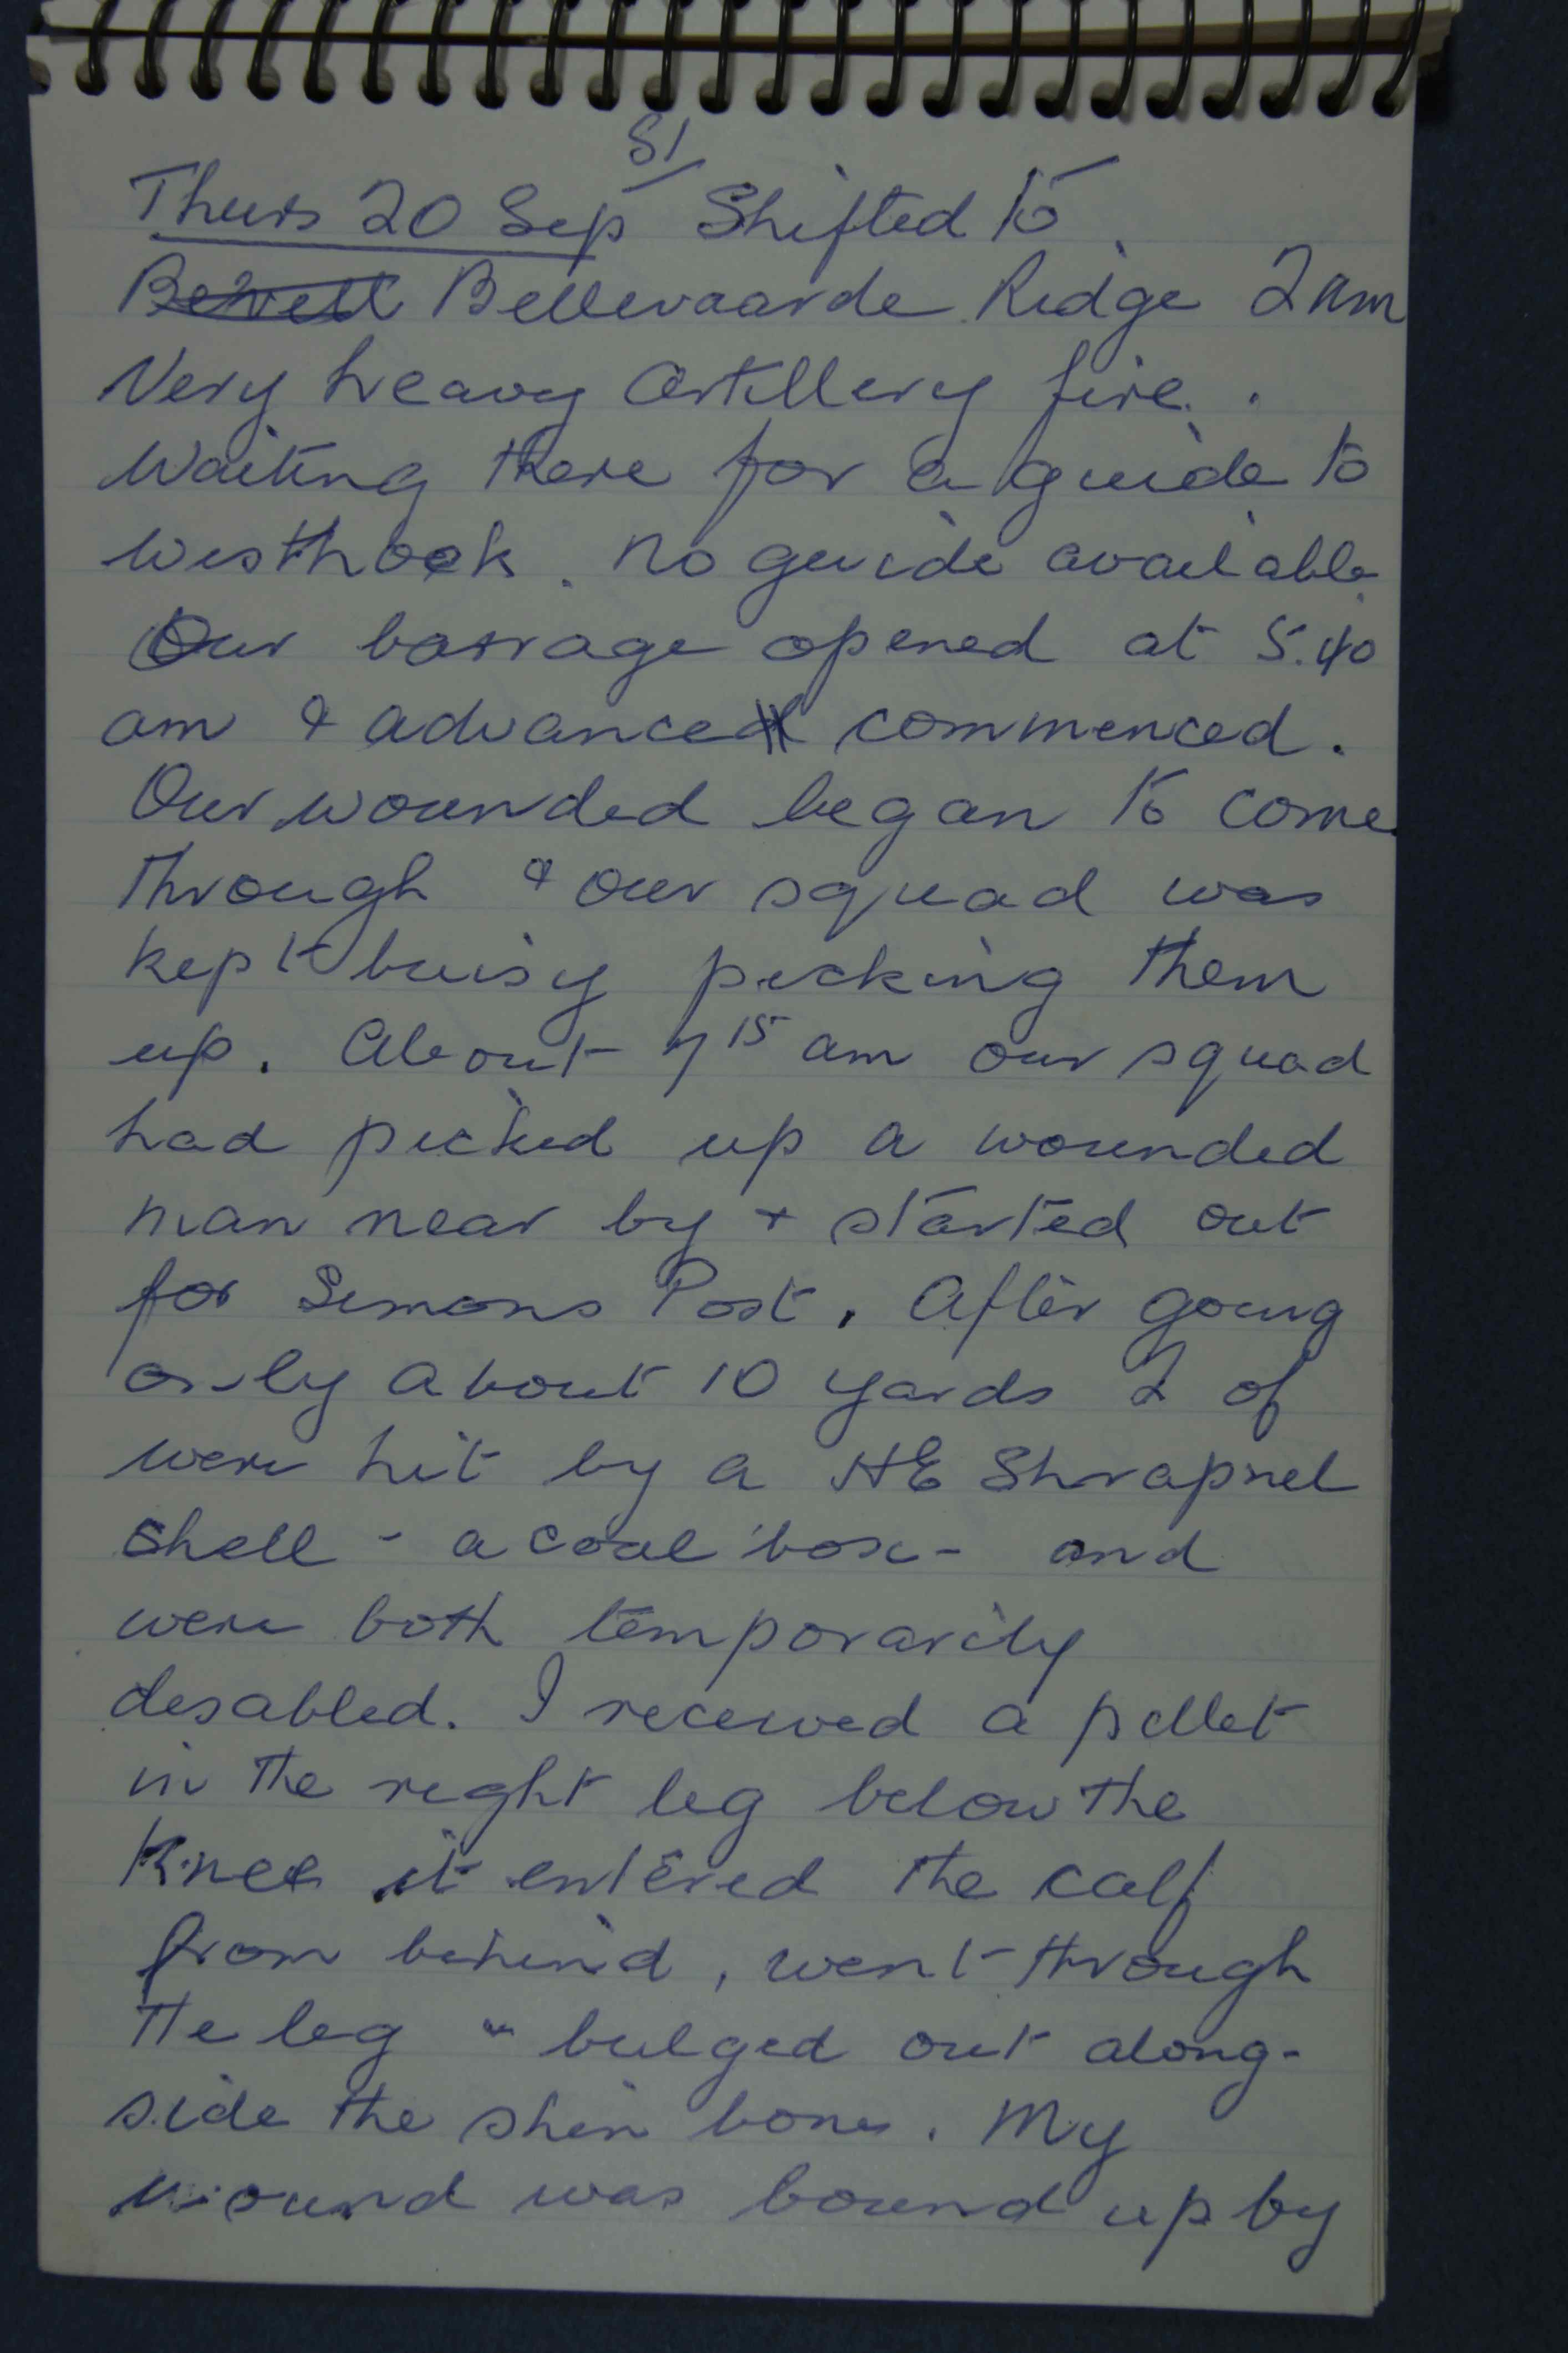 51/
Thurs 20 Sep Shifted to
Bellevaarde Ridge 2am
Very heavy Artillery fire.
Waiting there for a guide to
Westhoek. No guide available
Our barrage opened at 5.40
am & advance commenced.
Our wounded began to come
through & our squad was
kept buisy picking them
up. About 7 15 am our squad
had picked up a wounded
man near by + started out
for Simons Post. After going
only about 10 yards 2 of
were hit by a HE Shrapnel
Shell - a coal box - and
were both temporarily
disabled. I received a pellet
in the right leg below the
Knee it entered the calf
from behind, went through
the leg & bulged out along-
side the shin bone. My
wound was bound up by